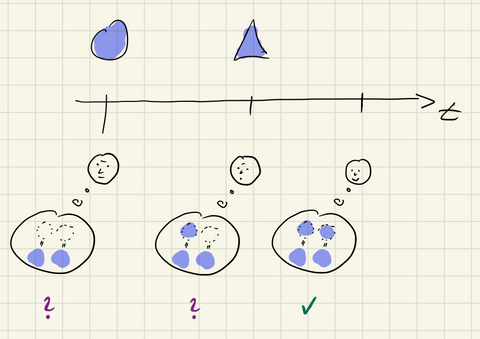 t
? ? ✓